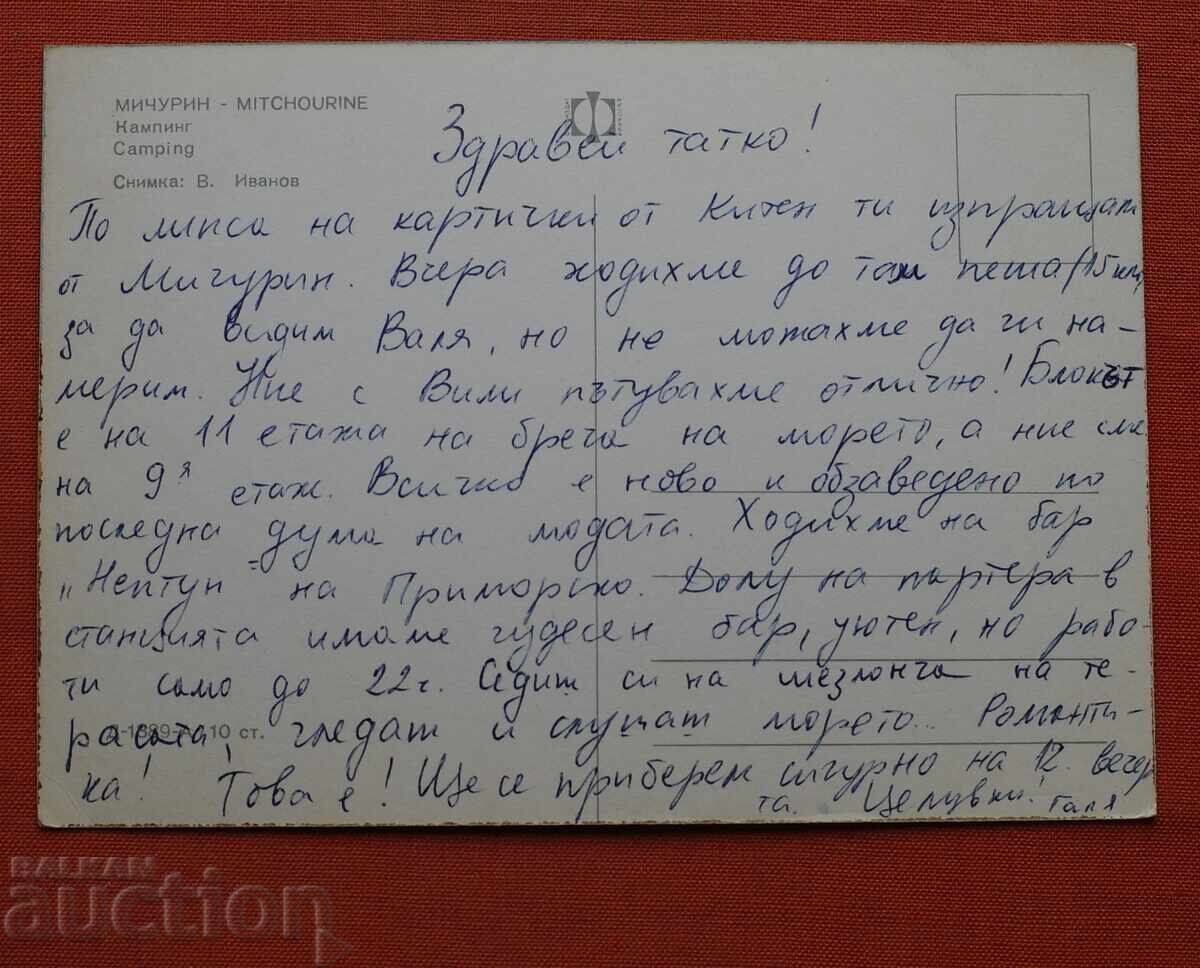 МИЧУРИН - MITCHOURINE
Кампинг
Camping
Снимка: В. Иванов
Здравей татко!
По липса на картички от Китен ти изпращам
от Мичурин. Вчера ходихме до там пеша (15 км)
за да видим Валя, но не можахме да ги на-
мерим. Ние с Вили пътувахме отлично! Блокът
е на 11 етажа на брега на морето, а ние сме
на 9я етаж. Всичко е ново и обзаведено по
последна дума на модата. Ходихме на бар
„Нептун" на Приморско. Долу на партера в
станцията имаме чудесен бар, уютен, но рабо-
ти само до 22ч. Седиш си на шезлонга на те-
расата, гледаш и слушаш морето... Романти-
ка! Това е! Ще се приберем сигурно на 12. вечер
та. Целувки! Галя
10 ст.
BALKAN
auction